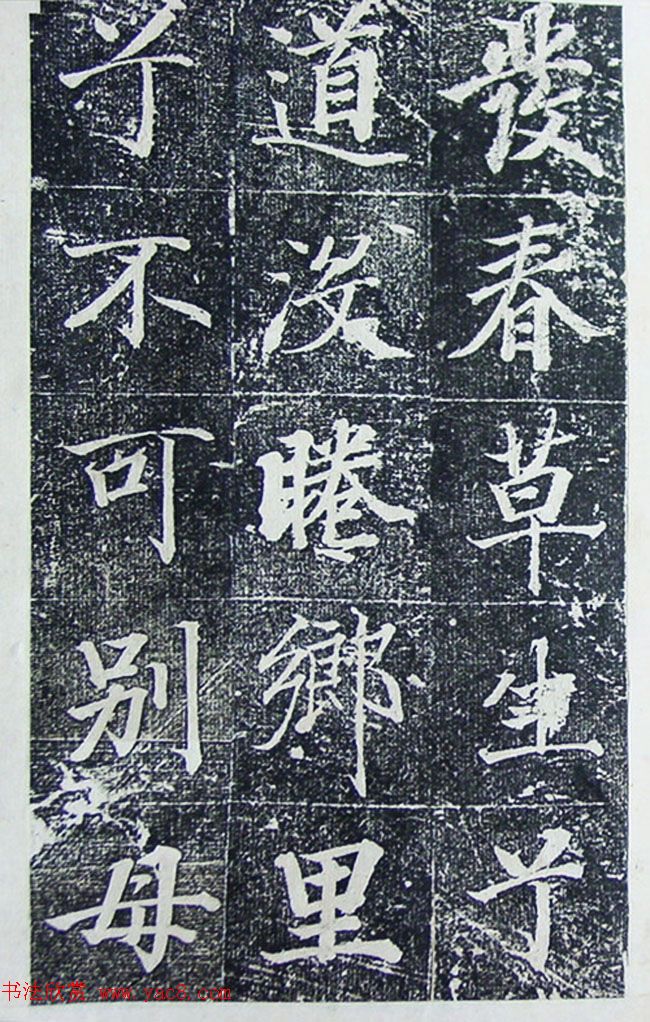 發春草生兮
道没睠鄉里
兮不可别母
书法欣赏 www.yac8.com